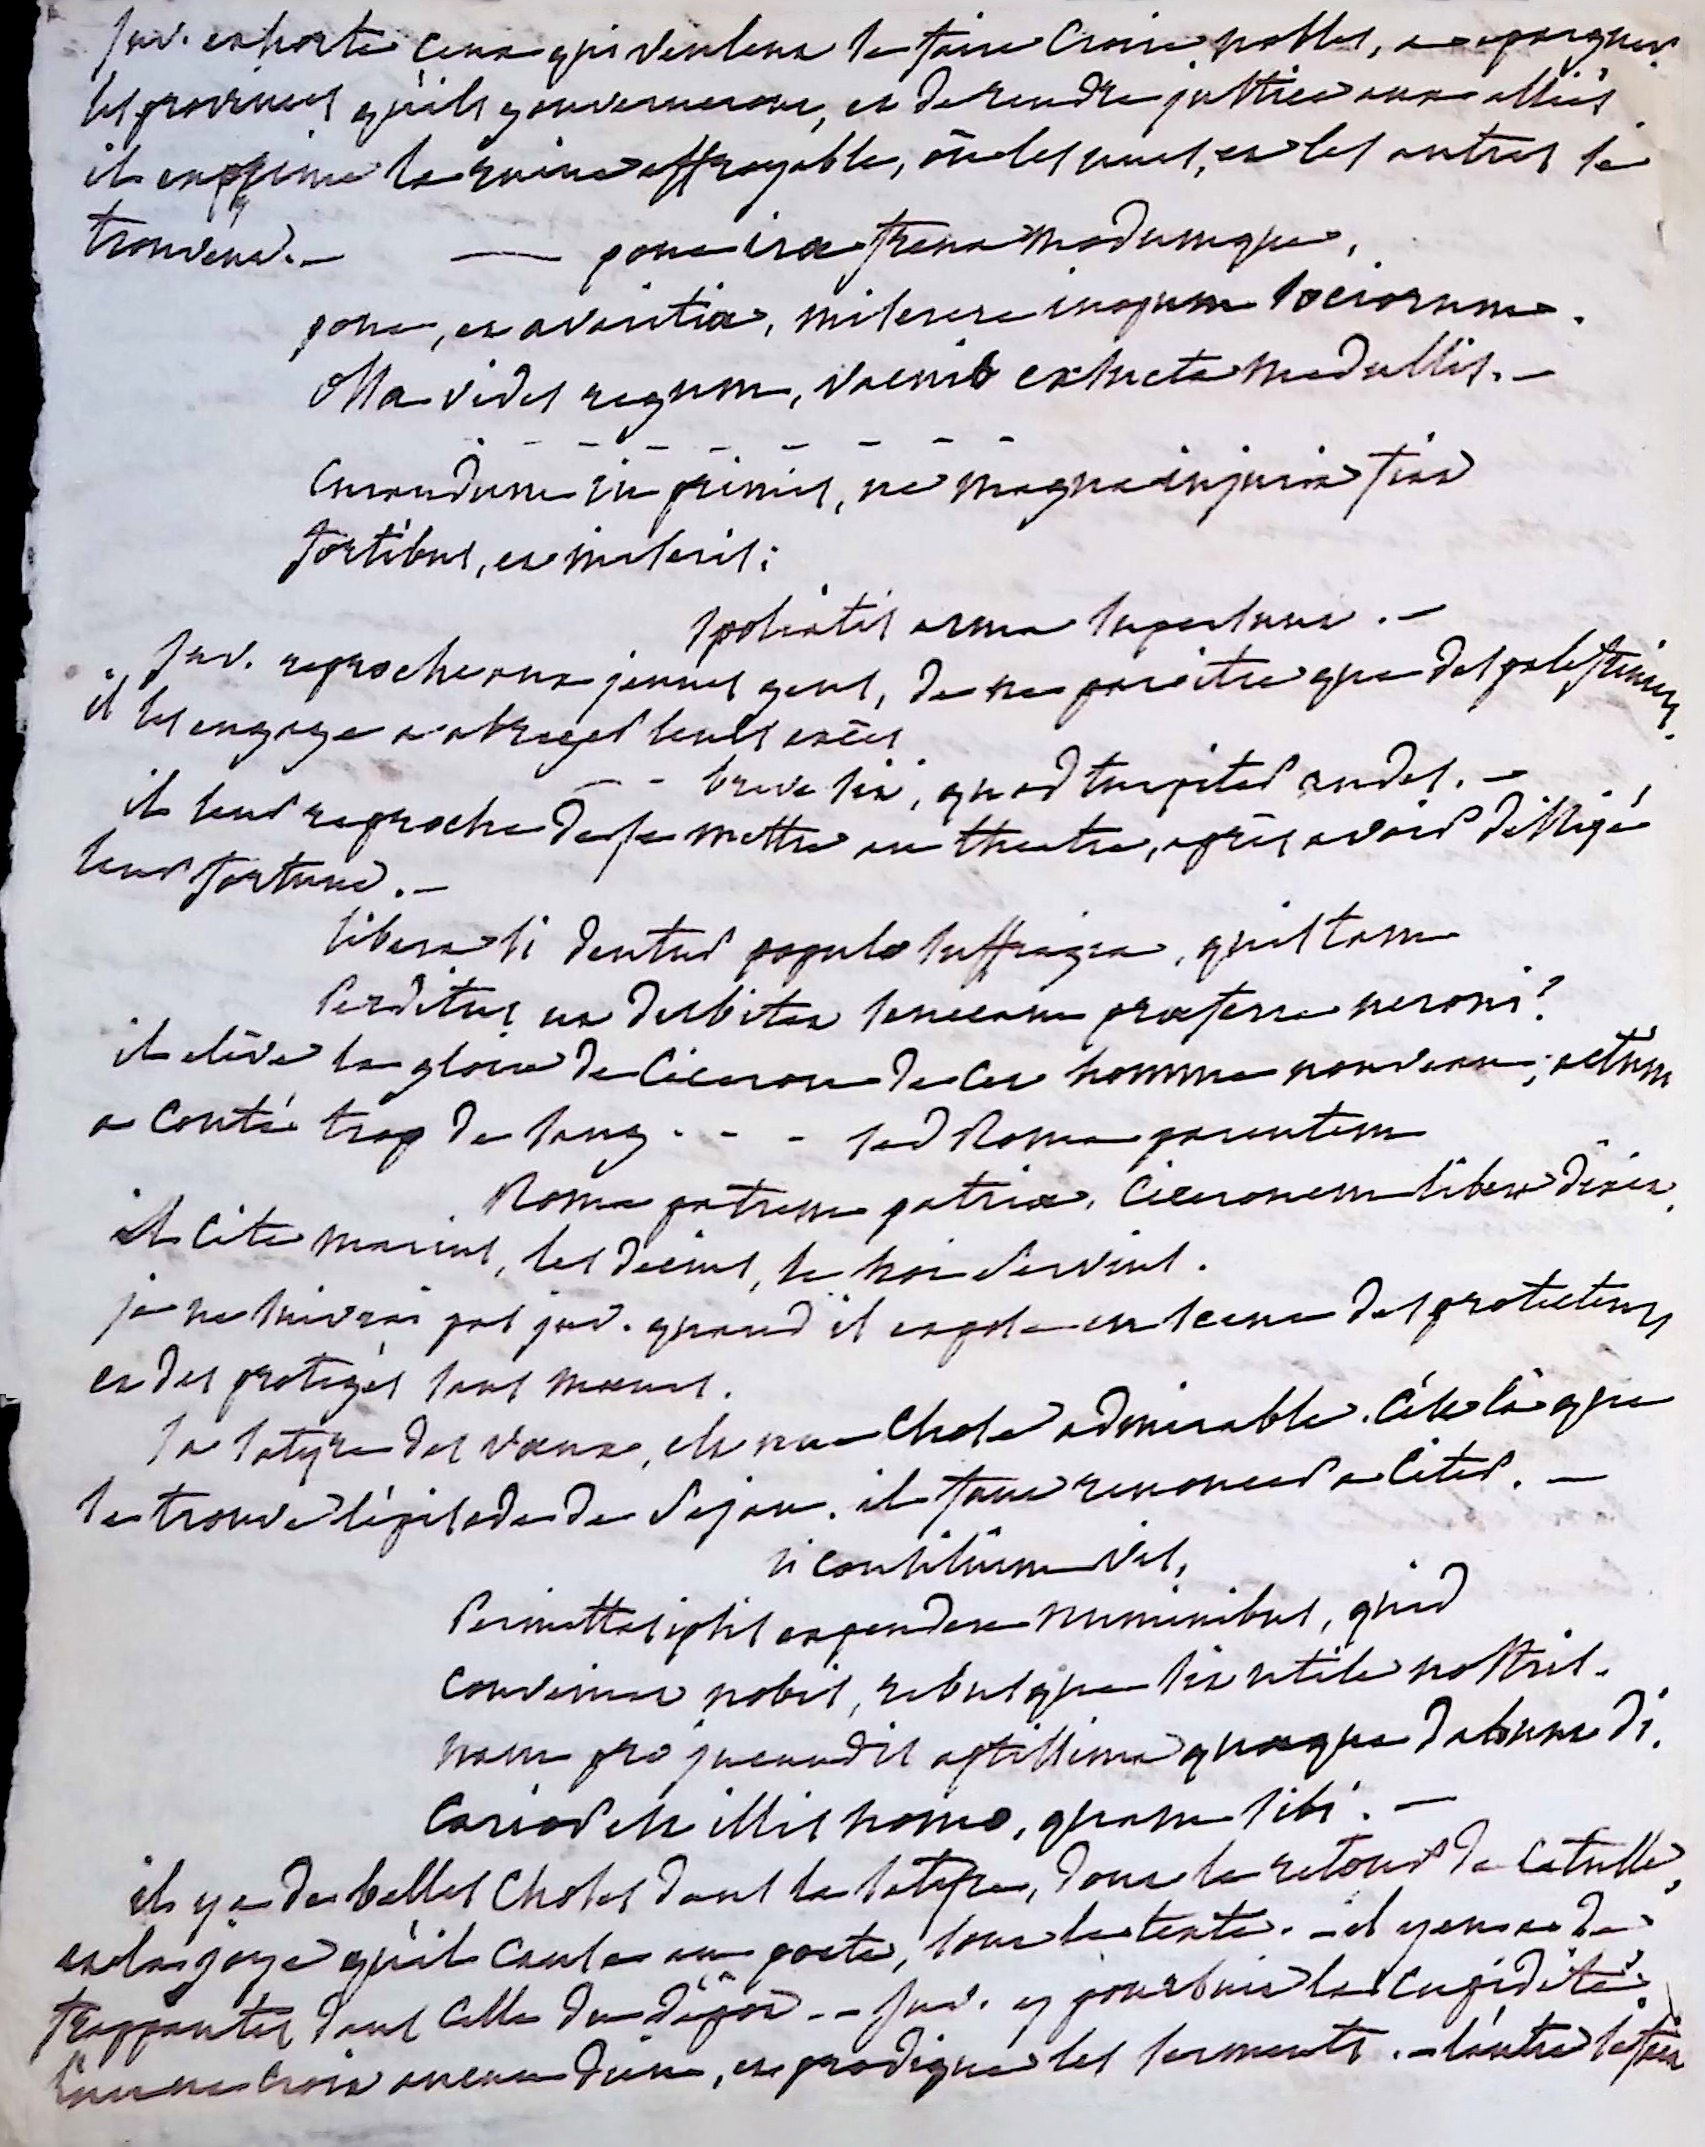 Juv. exhorte ceux qui veulent se faire croire nobles, a epargner
les provinces qu'ils gouverneront, et de rendre justice aux alliés
il exprime la ruine effroyable, où les unes, et les autres se
trouvent. — — pone irae frena modumque,
pone, et avaritiae, miserere inopum sociorum.
Ossa vides regum, vacuis exhucta medullis. —
. - - - - - - -
Curandum in primis, ne magna injuria fiat
fortibus, et miseris;
spoliatis arma supersunt. —
Juv. reproche aux jeunes gens, de ne paroitre que des palefreniers.
il les engage a abreger leurs excès
- - breve sit, quod turpiter audes. —
il leur reproche de se mettre au theatre, après avoir dissipé
leur fortune. —
libera si dentur populo suffragia, quis tam
Perditus ut dubitet senecam praeferre neroni?
il elève la gloire de Ciceron de cet homme nouveau; actium
a couté trop de sang - - - sed Roma parentem
Roma patrem patriae, Ciceronem libera dixit.
il cite marius, les decius, le roi Servius.
je ne suivrai pas juv. quand il expose en scene des protecteurs
et des protegés sans moeurs.
la satyre des voeux, est une chose admirable. C'est là que
se trouve l'episode de Sejan. il faut renoncer a citer. —
si consilium vis,
Permittes ipsis expendere numinibus, quid
conveniat nobis, rebusque sit utile nostris.
nam pro jucundis aptissima quaeque dabunt di.
Carior est illis homo, quam sibi. —
il y a de belles choses dans la satyre, dont le retour de Catulle,
et la joye qu'il cause au poete, sont le texte. - il y en a de
frappantes dans celle du dépot -- Juv. y poursuit la cupidité.
l'un ne croit aucun dieu, et prodigue les serments. - l'autre